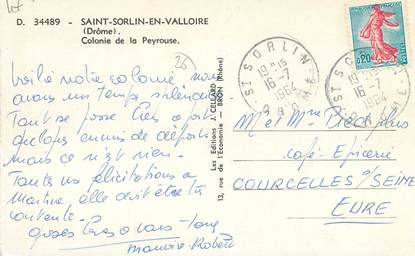 D. 34489 - SAINT-SORLIN-EN-VALLOIRE
(Drôme).
Colonie de la Peyrouse.
26
Voilà notre colonie nous
avons un temps splendide
Tout se passe bien à part
quelques ennuis de
mais ce n'est rien.
Toutes nos félicitations à
Martine, elle doit être
contente.
Gros à vous tous
Maurice-Robert
Les Editions CELLARD
12, rue de l'Economie - BRON (Rhône)
ST SORLIN
19H15
16-7
1964
DROME
ST SORLIN
19H15
16-7
1964
0,20
M. et Mme
Café-Epicerie
COURCELLES s/SEINE
EURE